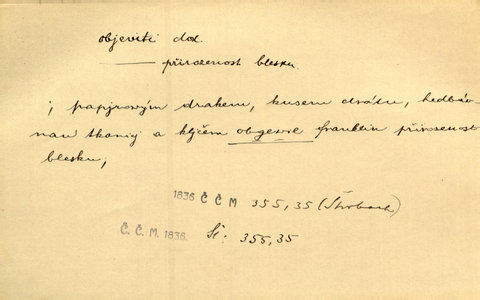 objeviti dok.
——— přirozenost blesku.
; papjrowým drakem, kusem drátu, hedbáw-
nau tkanicj a kljčem obgewil Franklin přirozenost
blesku;
1836 Č Č M 355,35 (Štrobach)
Č. Č. M. 1836. Si: 355,35